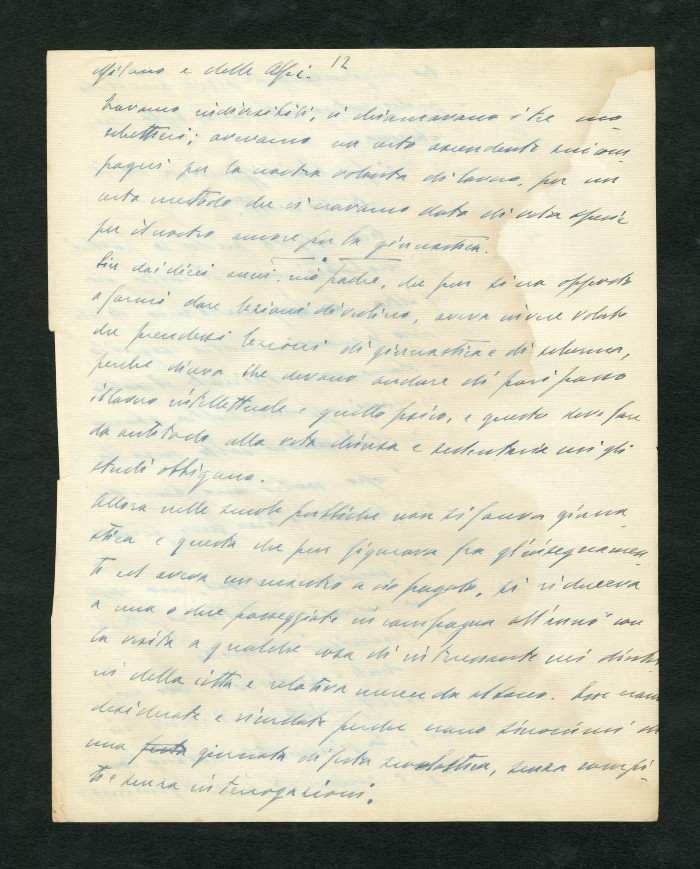 Milano e delle Alpi. 12
Eravamo indivisibili, ci chiamavano i tre mo
schettieri; avevamo un certo ascendente sui com
pagni per la nostra volontà di lavoro, per un
certo metodo che ci eravamo dato di vita
per il nostro amore per la ginnastica.
Sin dai dieci anni, mio padre, che pur si era opposto
a farmi dare lezioni di violino, aveva invece voluto
che prendessi lezioni di ginnastica e di scherma,
perche diceva che devono andare di pari passo
il lavoro intellettuale e quello fisico, e questo deve fare
da antidoto alla vita chiusa e sedentaria cui gli
studi obbligano.
Allora nelle scuole pubbliche non si faceva ginna
stica e questa che pur figurava fra gl'insegnamen
ti ed aveva un maestro a ciò pagato, si riduceva
a una o due passeggiate in campagna all'anno con
la visita a qualche cosa di interessante nei dintor
ni della città e relativa merenda al sacco. Esse erano
desiderate e ricordate perche erano sinonimi di
una festa giornata di festa scolastica, senza compi
ti e senza interrogazioni.